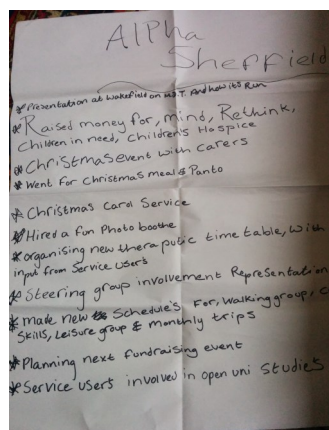 Alpha
Sheffield
* Presentation at Wakefield on M.I.T. And how it's Run
* Raised money for, mind, Rethink,
Children in need, Children's Hospice
* Christmas event with carers
* Went for Christmas meal & Panto
* Christmas Carol Service
* Hired a fun Photo boothe
* organising new thera putic time table, with
input from Service users
* Steering group involvement Representation
* made new Schedule's For, Walking group, C
Skills, Leisure group & monthly trips
* Planning next fundraising event
* Service users involved in open uni Studies